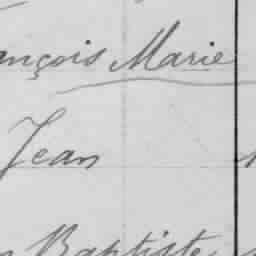 ançois Marie
Jean
Baptiste